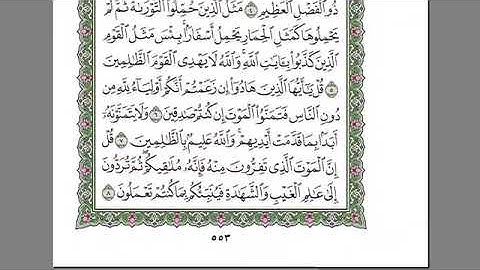 ذُو ٱلْفَضْلِ ٱلْعَظِيمِ ۝٤ مَثَلُ ٱلَّذِينَ حُمِّلُوا۟ ٱلتَّوْرَىٰةَ ثُمَّ لَمْ
يَحْمِلُوهَا كَمَثَلِ ٱلْحِمَارِ يَحْمِلُ أَسْفَارًۢا ۚ بِئْسَ مَثَلُ ٱلْقَوْمِ
ٱلَّذِينَ كَذَّبُوا۟ بِـَٔايَٰتِ ٱللَّهِ ۚ وَٱللَّهُ لَا يَهْدِى ٱلْقَوْمَ ٱلظَّٰلِمِينَ
۝٥ قُلْ يَٰٓأَيُّهَا ٱلَّذِينَ هَادُوٓا۟ إِن زَعَمْتُمْ أَنَّكُمْ أَوْلِيَآءُ لِلَّهِ مِن
دُونِ ٱلنَّاسِ فَتَمَنَّوُا۟ ٱلْمَوْتَ إِن كُنتُمْ صَٰدِقِينَ ۝٦ وَلَا يَتَمَنَّوْنَهُۥٓ
أَبَدًۢا بِمَا قَدَّمَتْ أَيْدِيهِمْ ۚ وَٱللَّهُ عَلِيمٌۢ بِٱلظَّٰلِمِينَ ۝٧ قُلْ
إِنَّ ٱلْمَوْتَ ٱلَّذِى تَفِرُّونَ مِنْهُ فَإِنَّهُۥ مُلَٰقِيكُمْ ۖ ثُمَّ تُرَدُّونَ
إِلَىٰ عَٰلِمِ ٱلْغَيْبِ وَٱلشَّهَٰدَةِ فَيُنَبِّئُكُم بِمَا كُنتُمْ تَعْمَلُونَ ۝٨
٥٥٣